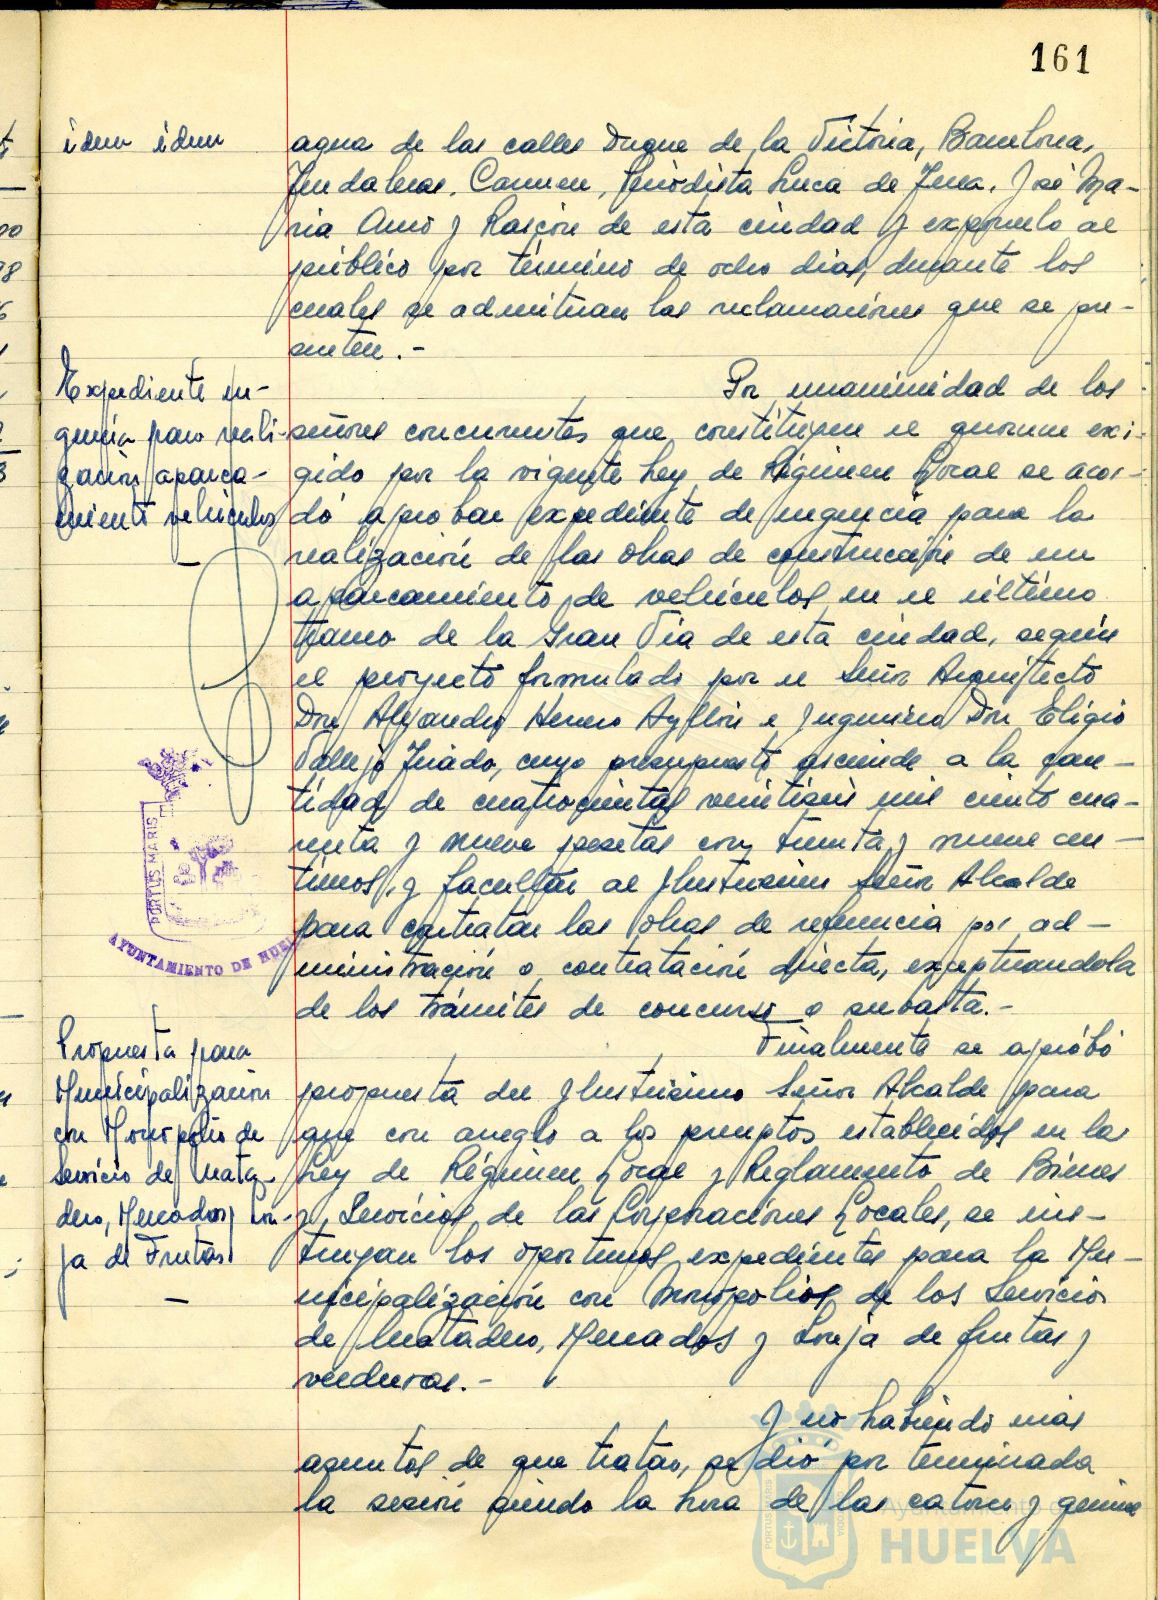 161
idem idem
agua de las calles Duque de la Victoria, Barcelona,
Carmen, Periodista Luca de Tena, José Ma-
ría Amo y Rascón de esta ciudad y exponerlo al
público por término de ocho dias, durante los
cuales se admitirán las reclamaciones que se pre-
senten.-
Expediente ur-
gencia para reali-
zación aparca-
miento vehículos
Por unanimidad de los
señores concurrentes que constituyen el quorum exi-
gido por la vigente Ley de Régimen Local se acor-
dó aprobar expediente de urgencia para la
realización de las obras de construcción de un
aparcamiento de vehículos en el último
tramo de la Gran Vía de esta ciudad, según
el proyecto formulado por el Señor Arquitecto
Don Alejandro Herrero Ayllón e Ingeniero Don Eligio
Vallejo, cuyo presupuesto asciende a la can-
tidad de cuatrocientas veintiseis mil ciento cua-
renta y nueve pesetas con treinta y nueve cen-
timos, y facultar al Ilustrisimo Señor Alcalde
para contratar las obras de referencia por ad-
ministración o contratación directa, exceptuandola
de los trámites de concurso o subasta.-
PORTUS MARIS
AYUNTAMIENTO DE HUEL
Propuesta para
Municipalización
con Monopolio de
Servicio de Mata-
dero, Mercados y Lon-
ja de Frutas
Finalmente se aprobó
propuesta del Ilustrisimo Señor Alcalde para
que con arreglo a los preceptos establecidos en la
Ley de Régimen Local y Reglamento de Bienes
y Servicios de las Corporaciones Locales, se ins-
truyan los oportunos expedientes para la Mu-
nicipalización con Monopolios de los Servicios
de Matadero, Mercados y Lonja de frutas y
verduras.-
Y no habiendo más
asuntos de que tratar, se dió por terminada
la sesión siendo la hora de las catorce y quince
Ayuntamiento de
HUELVA